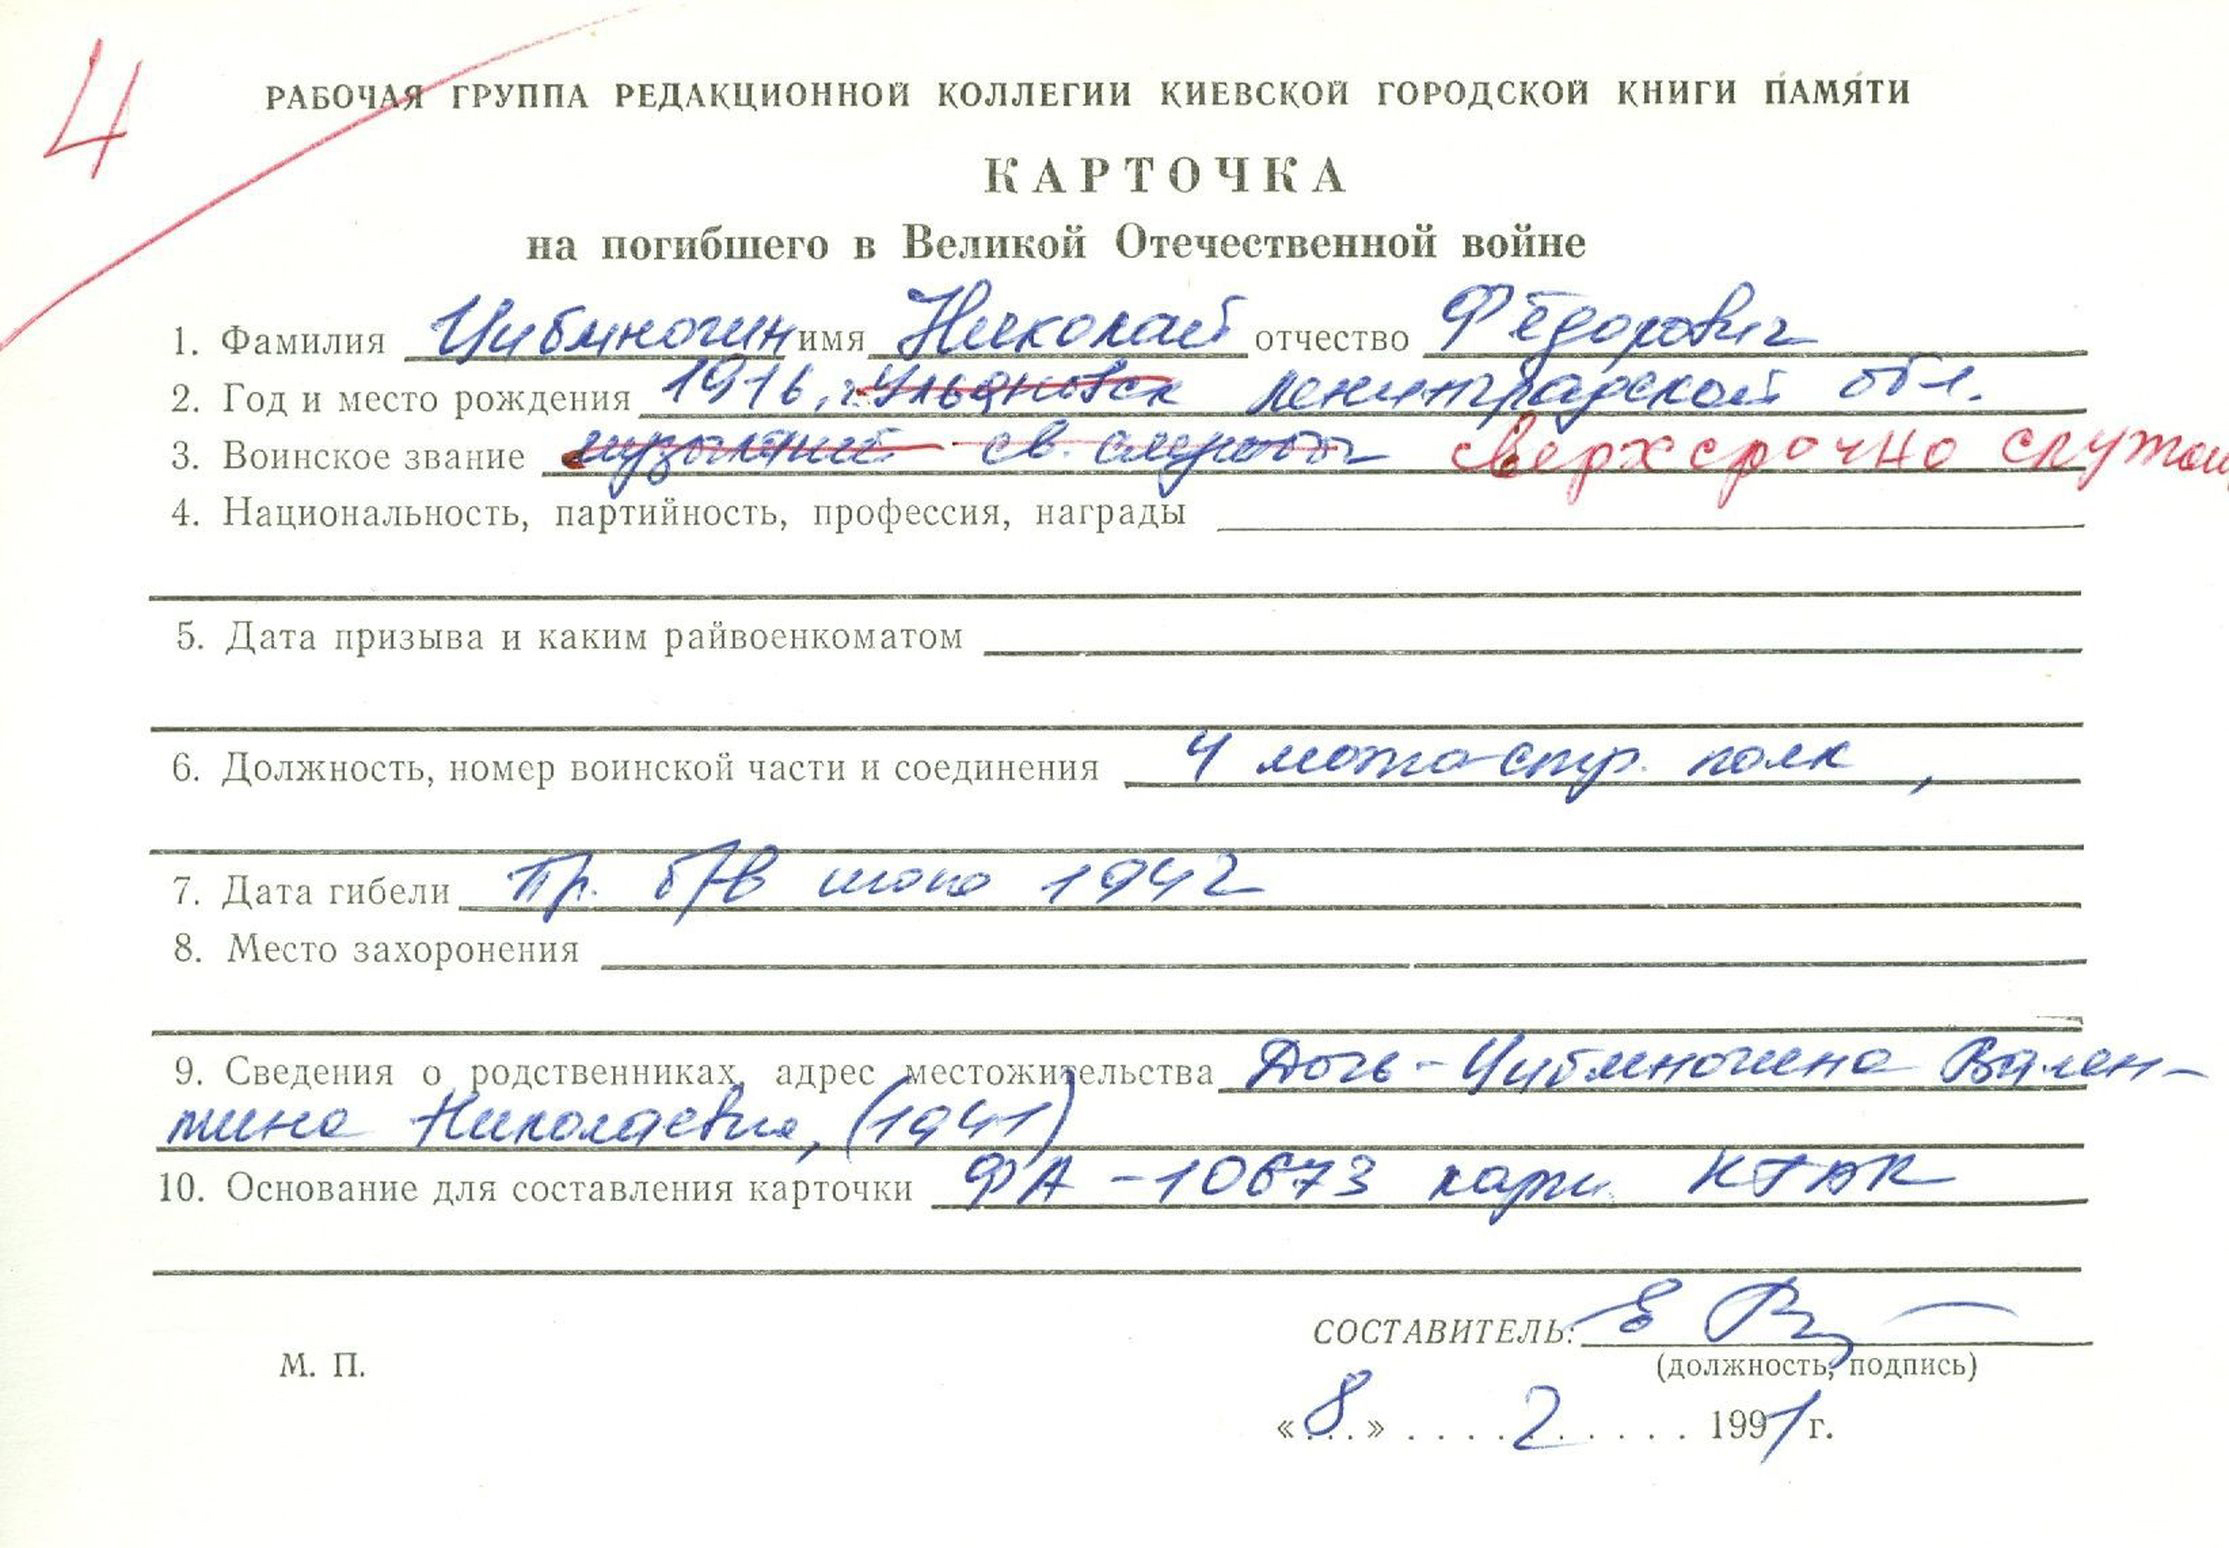 4
РАБОЧАЯ ГРУППА РЕДАКЦИОННОЙ КОЛЛЕГИИ КИЕВСКОЙ ГОРОДСКОЙ КНИГИ ПАМЯТИ
КАРТОЧКА
на погибшего в Великой Отечественной войне
1. Фамилия Цибиногин имя Николай отчество Фёдорович
2. Год и место рождения 1916, г. Ульяновск Ленинградской обл.
3. Воинское звание св. службы сверхсрочно служащ
4. Национальность, партийность, профессия, награды
5. Дата призыва и каким райвоенкоматом
6. Должность, номер воинской части и соединения 4 мото-стр. полк,
7. Дата гибели Пр. б/в 1942
8. Место захоронения
9. Сведения о родственниках, адрес местожительства Дочь - Цибиногина Вален-
тина Николаевна, (1941)
10. Основание для составления карточки ФА - 10673
СОСТАВИТЕЛЬ:
(должность, подпись)
М. П.
«8» 2 1991 г.